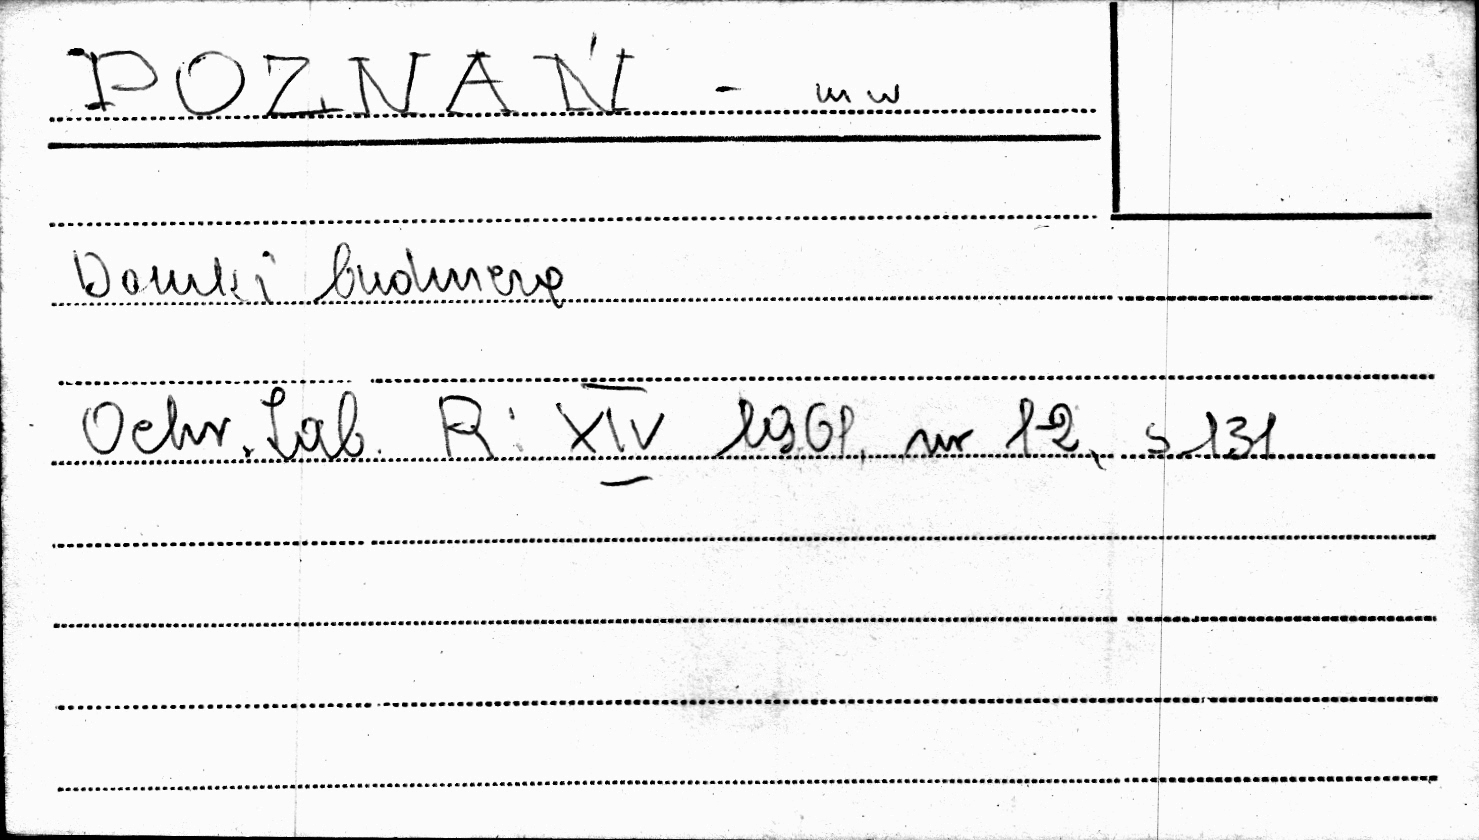 POZNAŃ - mw
Domki budnicze
Ochr. Zab. R: XIV 1961, nr 12, s 131